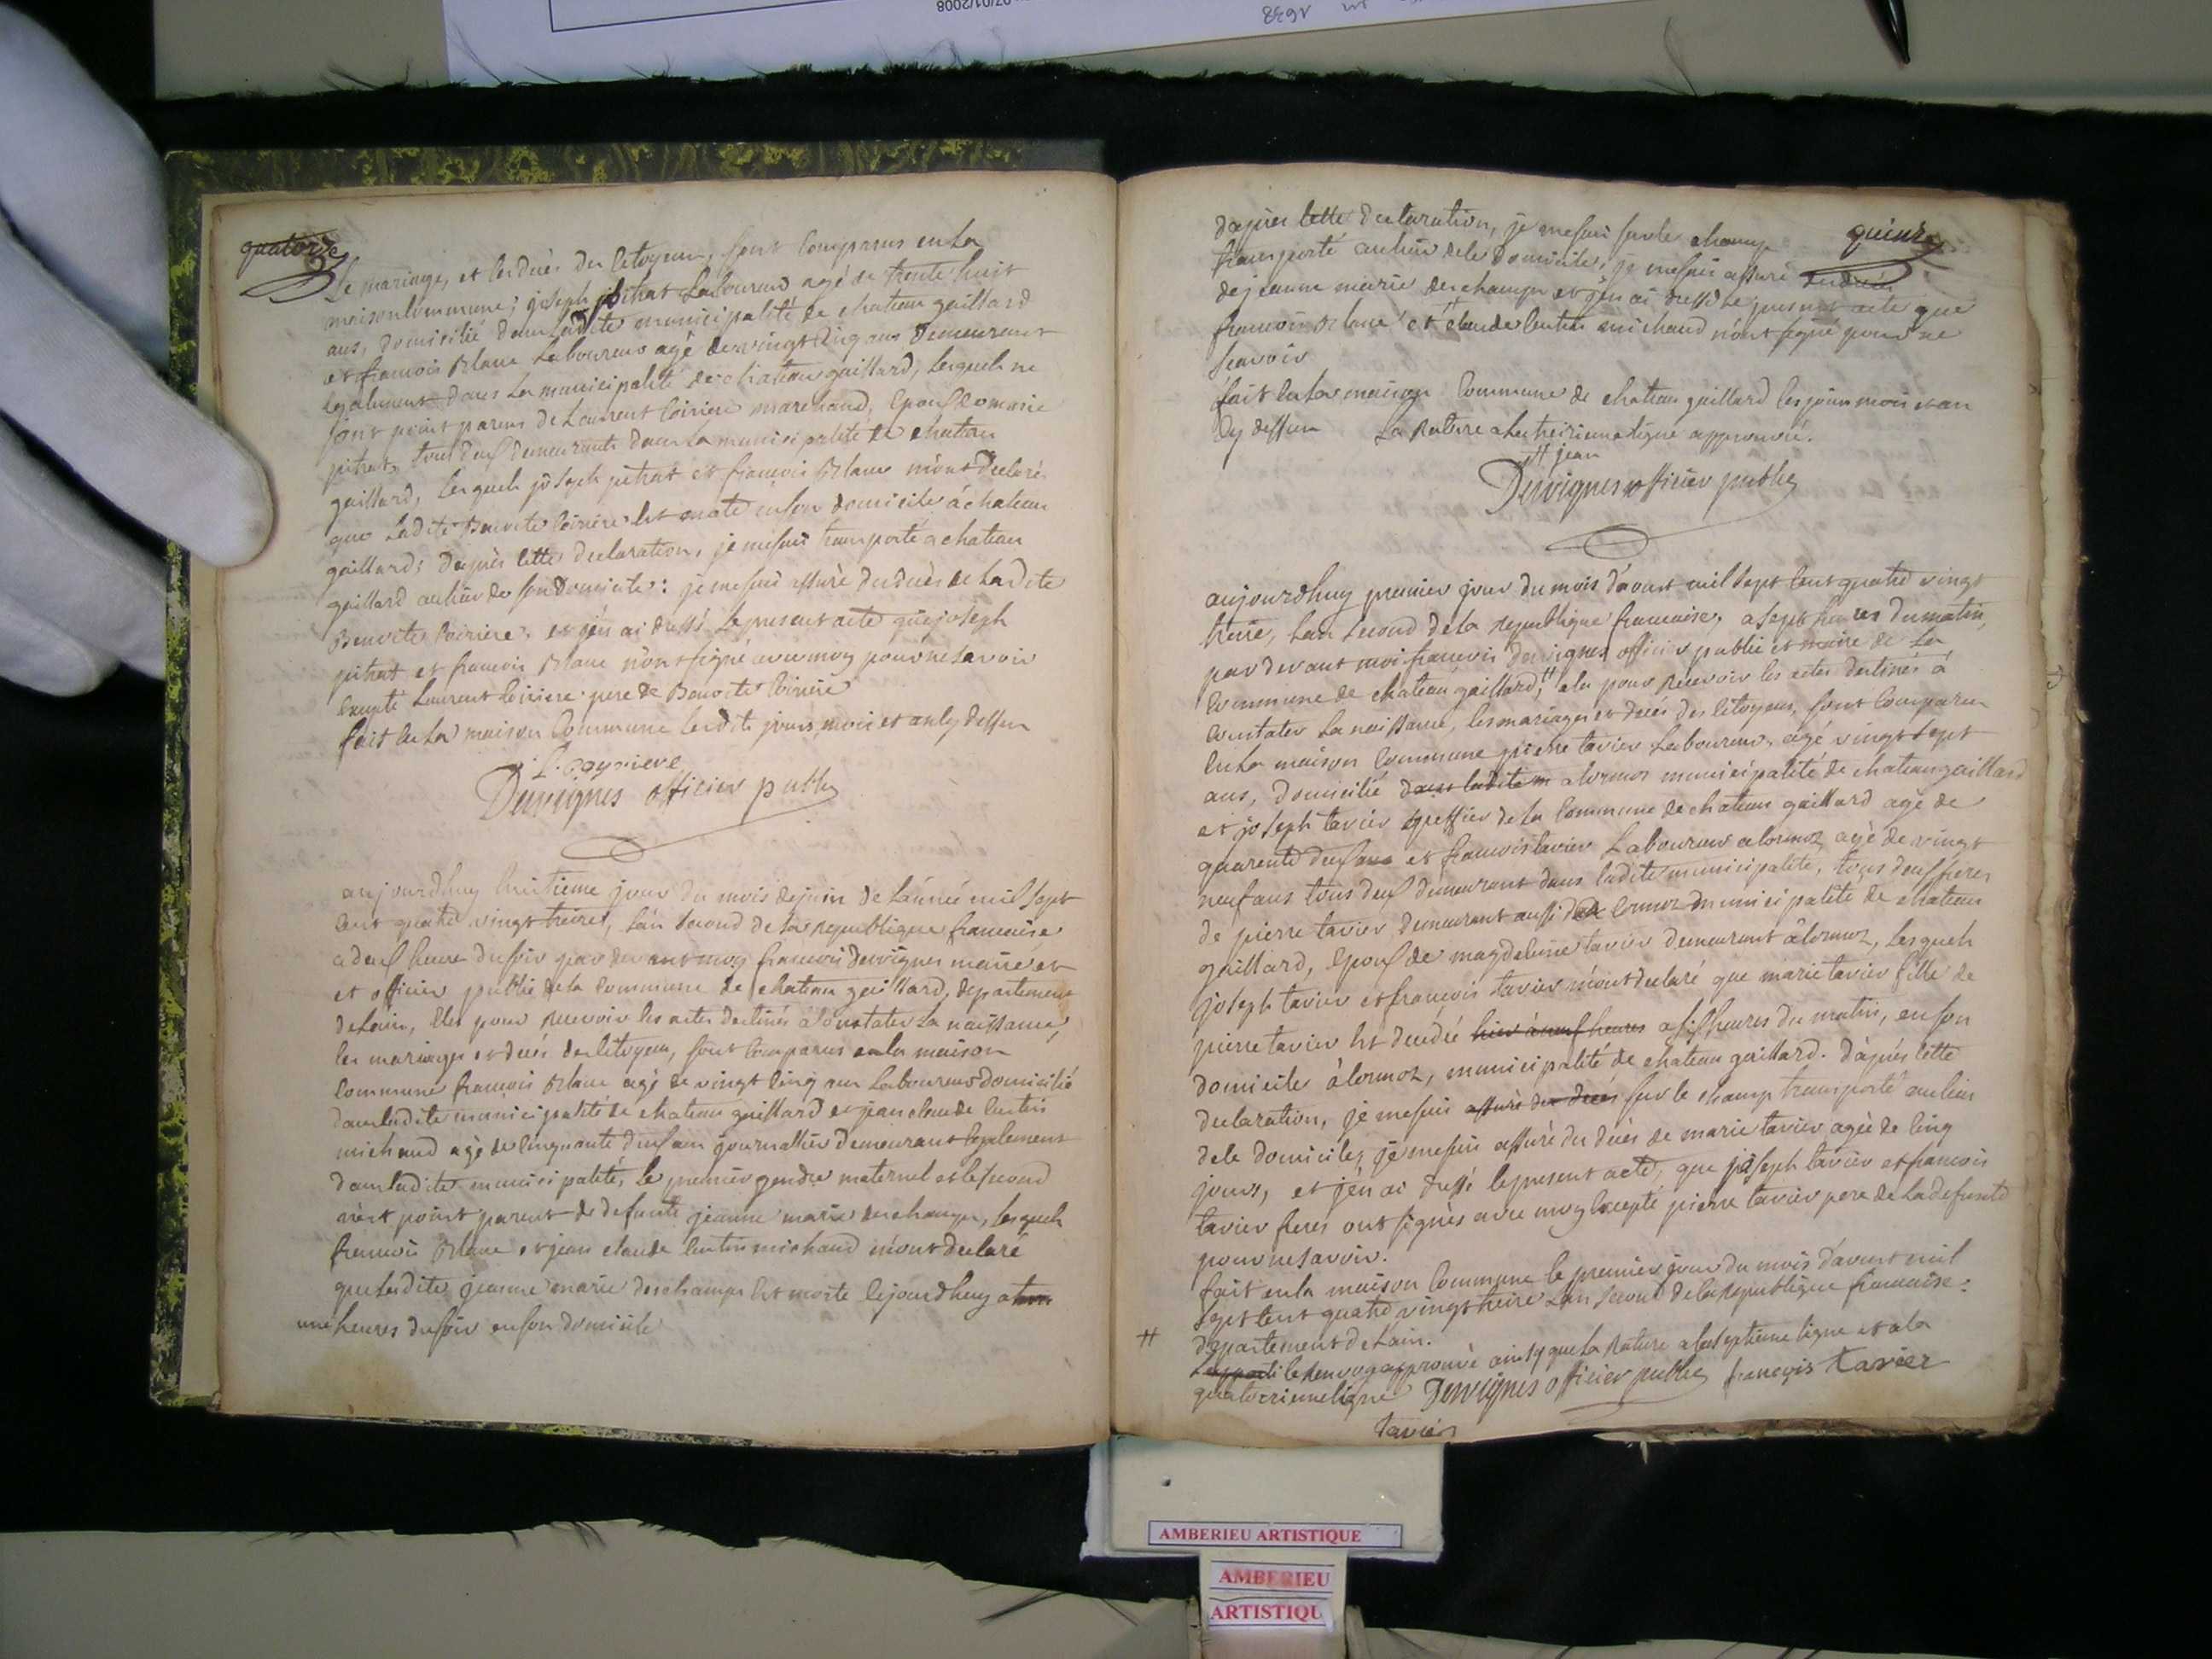 07/01/2008
1693
quatorze
le mariage, et les décès des citoyens, sont comparus en la
maison commune; joseph pitrat laboureur agé de trente huit
ans, domicilié dans ladite municipalité de chateau gaillard
et francois Blanc laboureur agé de vingt cinq ans demeurant
egalement dans la municipalité de chateau gaillard, lesquels ne
sont point parens de Laurent Coiriere marchand, Epoux de marie
pitrat, tout deux demeurants dans la municipalité de chateau
gaillard, lesquels joseph pitrat et francois Blanc m'ont declaré
que ladite Benoite Coiriere est morte en son domicile à chateau
gaillard; d'après cette declaration, je me suis transporté a chateau
gaillard au lieu de son domicile: je me suis assuré du décès de ladite
Benoite Coiriere, et j'en ai dressé le present acte que joseph
pitrat et francois Blanc n'ont signé avec moy pour ne savoir
Excepté Laurent Coiriere pere de Benoite Coiriere
fait en la maison Commune lesdits jours, mois et an cy dessus
L. Coyriere
Dervignes officier public
aujourdhuy huitieme jour du mois de juin de l'année mil sept
cent quatre vingt treize, l'an second de la republique francaise
a deux heures du soir par devant moy francois dervignes maire et
et officier public de la commune de chateau gaillard, departement
de Lain, Elu pour recevoir les actes destinés à constater la naissance,
les mariages et décès des citoyens, sont comparus en la maison
commune francois Blanc agé de vingt cinq ans laboureur domicilié
dans ladite municipalité de chateau gaillard et jean claude
michaud agé de cinquante deux ans journallier demeurant Egalement
dans ladite municipalité, le premier gendre maternel et le second
n'est point parent de defunte jeanne marie deschamps, lesquels
francois Blanc et jean claude michaud m'ont declaré
que ladite jeanne marie deschamps est morte cejourdhuy a
une heures du soir en son domicile
quinze
d'apres cette declaration, je me suis sur le champ
transporté au lieu de le domicile, je me suis assuré du décès
de jeanne marie deschamps et j'en ai dressé le present acte que
francois Blanc et # claude michaud n'ont signé pour ne
scavoir
fait en la maison Commune de chateau gaillard les jours mois et an
Cy dessus La Rature a la treizieme ligne approuvé.
# jean
Dervignes officier public
aujourdhuy premier jour du mois d'aoust mil sept cent quatre vingt
treize, l'an second de la republique francaise, a sept heures du matin,
par devant moi francois dervignes officier public et maire de la
Commune de chateau gaillard,# elu pour recevoir les actes destinés à
constater la naissance, les mariages et décès des citoyens, sont comparu
en la maison Commune pierre tavier laboureur, agé vingt sept
ans, domicilié dans ladite m a lormoz municipalité de chateau gaillard
et joseph tavier greffier de la commune de chateau gaillard agé de
quarente deux ans et francois tavier Laboureur a lormoz agé de vingt
neuf ans tous deux demeurant dans ladite municipalité, tous deux freres
de pierre tavier demeurant aussi de lormoz municipalité de chateau
gaillard, Epoux de magdeleine tavier demeurant à lormoz, lesquels
joseph tavier et francois tavier m'ont declaré que marie tavier fille de
pierre tavier est decedée hier à neuf heures a six heures du matin, en son
domicile à lormoz, municipalité de chateau gaillard. d'après cette
declaration, je me suis assuré du décès sur le champ transporté au lieu
de le domicile, je me suis assuré du décès de marie tavier agée de cinq
jours, et j'en ai dressé le present acte, que joseph tavier et francois
tavier freres ont signés avec moy Excepté pierre tavier pere de la defunte
pour ne savoir.
fait en la maison Commune le premier jour du mois d'aoust mil
sept cent quatre vingt treize L'an second de la republique francaise:
# departement de Lain.
le renvoy approuvé ainsy que la Rature a la septieme ligne et a la
quatorzieme ligne Dervignes officier public francois tavier
tavier
AMBERIEU ARTISTIQUE
AMBERIEU
ARTISTIQU